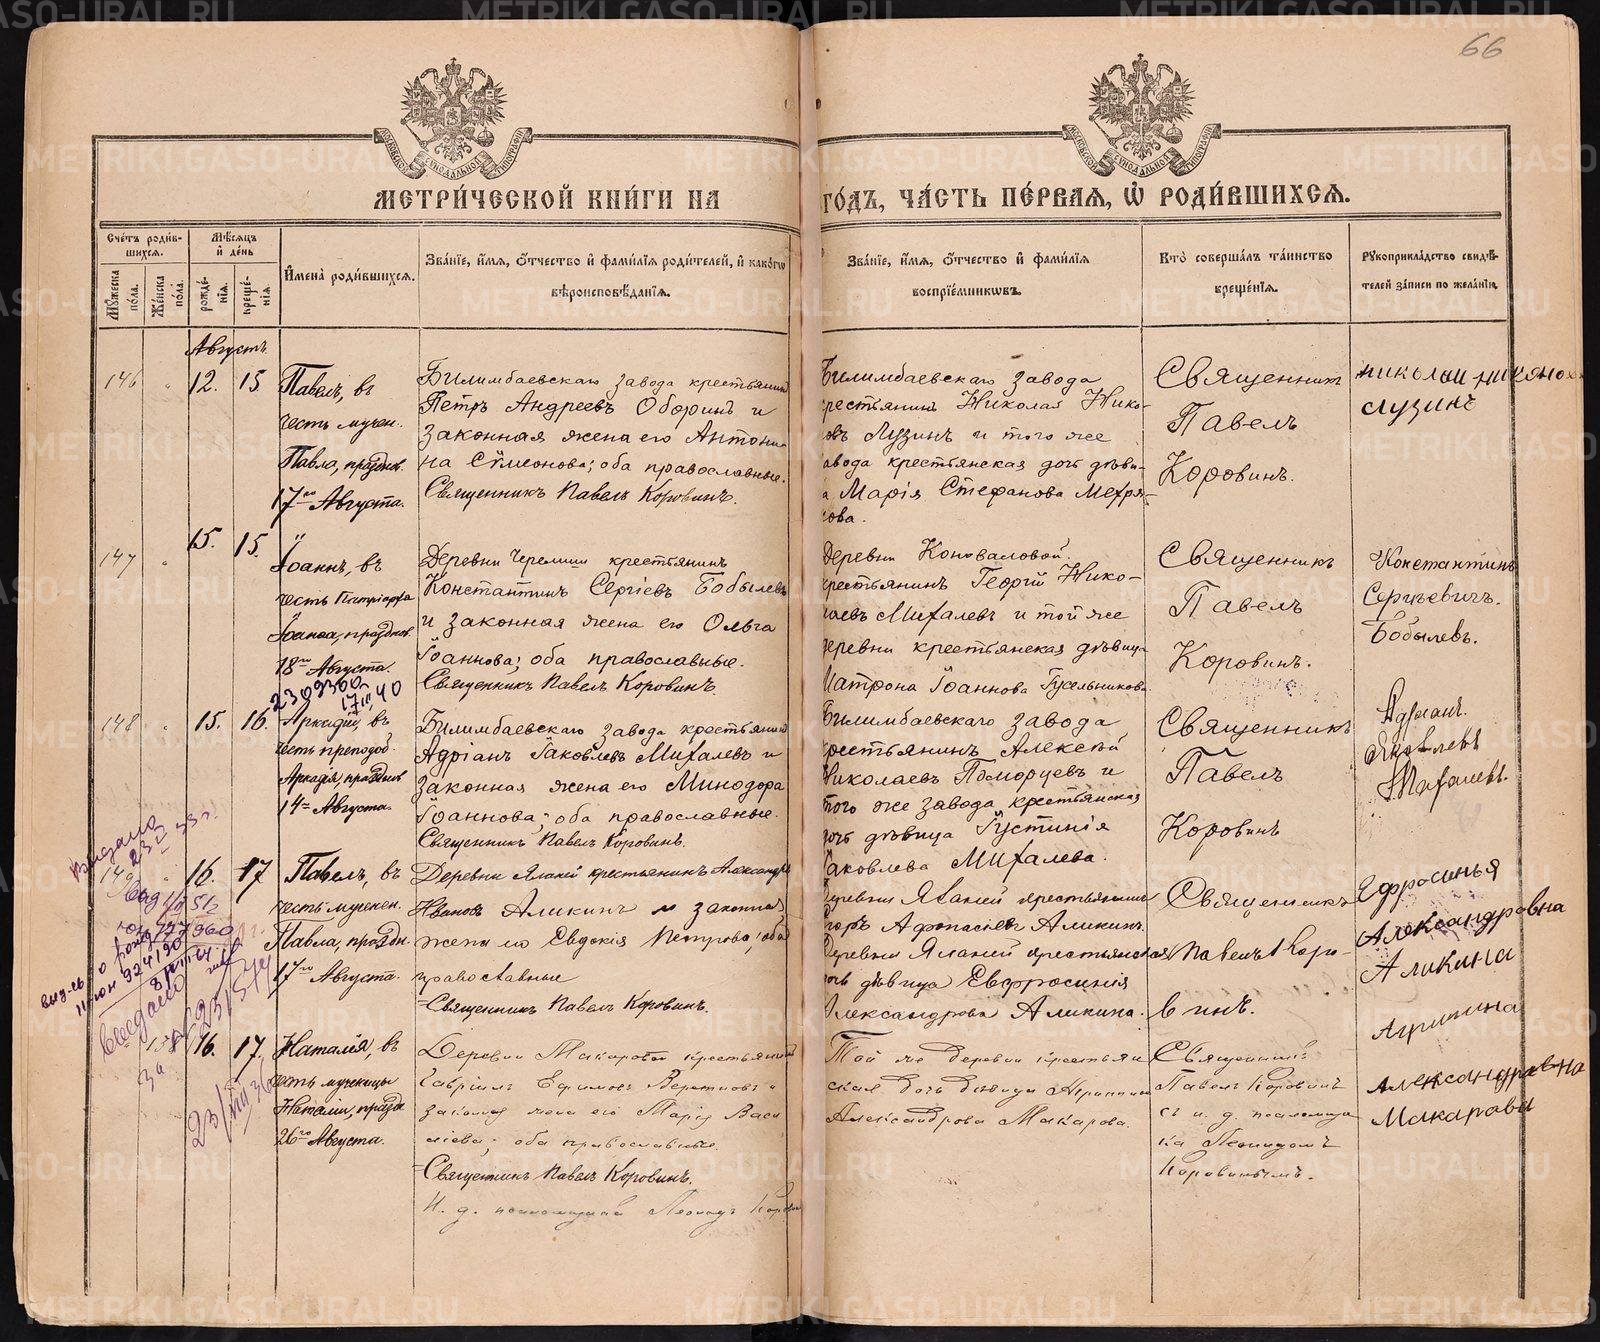 66
МЕТРИ́ЧЕСКОЙ КНИ́ГИ НА ГО́ДЪ, ЧА́СТЬ ПЕ́РВАЯ, Ѡ҆ РОДИ́ВШИХСЯ.
Сче́тъ роди́в-
шихся.
Мѣ́сяцъ
и҆ де́нь
Мꙋ́жеска по́ла.
Же́нска по́ла.
рожде́-
нїя.
креще́-
нїя.
И҆мена̀ роди́вшихся.
Зва́нїе, и҆́мя, о҆́тчество и҆ фами́лїя роди́телей, и҆ како́гѡ
вѣроисповѣ́данїя.
Зва́нїе, и҆́мя, о҆́тчество и҆ фами́лїя
воспрїе́мникѡвъ.
Кто̀ соверша́лъ та́инство
креще́нїя.
Рꙋкоприкла́дство свидѣ́-
телей за́писи по жела́нїю.
Августъ
146
12. 15
Павелъ, въ
честь мучен.
Павла, празднов.
17го Августа.
Билимбаевскаго завода крестьянинъ
Петръ Андреевъ Оборинъ и
законная жена его Антони-
на Сѵмеонова; оба православные.
Священникъ Павелъ Коровинъ.
Билимбаевскаго завода
крестьянинъ Николай Нико-
овъ Лузинъ и того же
завода крестьянская дочь дѣви-
а Марія Стефанова Метря-
кова.
Священникъ
Павелъ
Коровинъ.
николай никано
лузинъ
147
15. 15.
Іоаннъ, въ
честь Патріарха
Іоанна, празднов.
18го Августа.
Деревни Черемши крестьянинъ
Константинъ Сергіевъ Бобылевъ
и законная жена его Ольга
Іоаннова; оба православные.
Священникъ Павелъ Коровинъ.
Деревни Коноваловой
крестьянинъ Георгій Нико-
лаевъ Михалевъ и той же
деревни крестьянская дѣвица
Матрона Іоаннова Гусельникова
Священникъ
Павелъ
Коровинъ.
Константинъ
Сергѣевичъ.
Бобылевъ.
2309360
17 III 40
148
15. 16.
Аркадій, въ
честь преподоб.
Аркадія, празднов
14го Августа.
Билимбаевскаго завода крестьянинъ
Адріанъ Іаковлевъ Михалевъ и
законная жена его Минодора
Іоаннова; оба православные.
Священникъ Павелъ Коровинъ.
Билимбаевскаго завода
крестьянинъ Алексѣй
Николаевъ Поморцевъ и
того же завода крестьянская
дочь дѣвица Іустинія
Іаковлева Михалева.
Священникъ
Павелъ
Коровинъ
Адріанъ.
Яковлевъ
Михалевъ.
149
16. 17
Павелъ, въ
честь мученик.
Павла, праздн.
17го Августа.
Деревни Яланей крестьянинъ Александръ
Ивановъ Аликинъ и законная
жена его Евдокія Петрова; оба
православные
Священникъ Павелъ Коровинъ.
деревни Яланей крестьянинъ
Аѳонасіевъ Аликинъ.
Деревни Яланей крестьянская
дочь дѣвица Евфросинія
Александрова Аликина.
Священникъ
Павелъ Коро-
винъ.
Ефросинья
Александровна
Аликина
Выдано
16. 17.
Наталія, въ
честь мученицы
Наталіи, праздн
26го Августа.
Деревни Макаровой крестьянинъ
Гавріилъ Ефимовъ Веретновъ и
законная жена его Марія Васи
ліева; оба православные.
Священникъ Павелъ Коровинъ.
И. д. псаломщика Леонидъ Корови
Той же деревни крестьян
ская дочь дѣвица Агриппина
Александрова Макарова.
Священникъ
Павелъ Коровинъ
съ и. д. псаломщи
ка Леонидомъ
Коровинымъ.
Агрипина
Александравна
Макарова